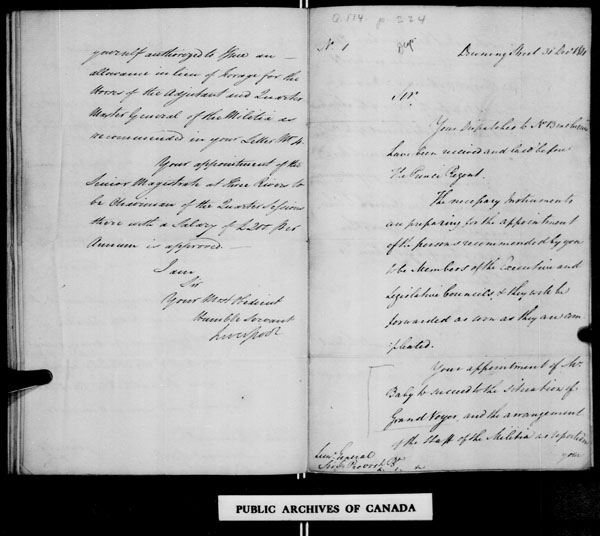 yourself authorized to give an
allowance in lieu of Forage for the
Horses of the Adjutant and Quarter
Master General of the Militia as
recommended in your Letter No 4.
Your appointment of the
Senior Magistrate at three Rivers to
be Chairman of the Quarter Sessions
there with a Salary of £200 Per
Annum is approved.
I am
Sir
Your Most Obedient
Humble Servant
Liverpool
Q. 114 p. 224
No 1
Downing Street 31 Decr 1811
Sir,
Your Dispatches to No 13 inclusive
have been received and laid before
The Prince Regent.
The necessary Instruments
are preparing for the appointment
of the persons recommended by you
to be Members of the Executive and
Legislative Councils & they will be
forwarded as soon as they are com
pleated.
Your appointment of Mr
Baby to succeed to the situation of
Grand Voyer, and the arrangement
of the Staff of the Militia as reported in
your
Lieut General
Sir G Prevost Bt
PUBLIC ARCHIVES OF CANADA